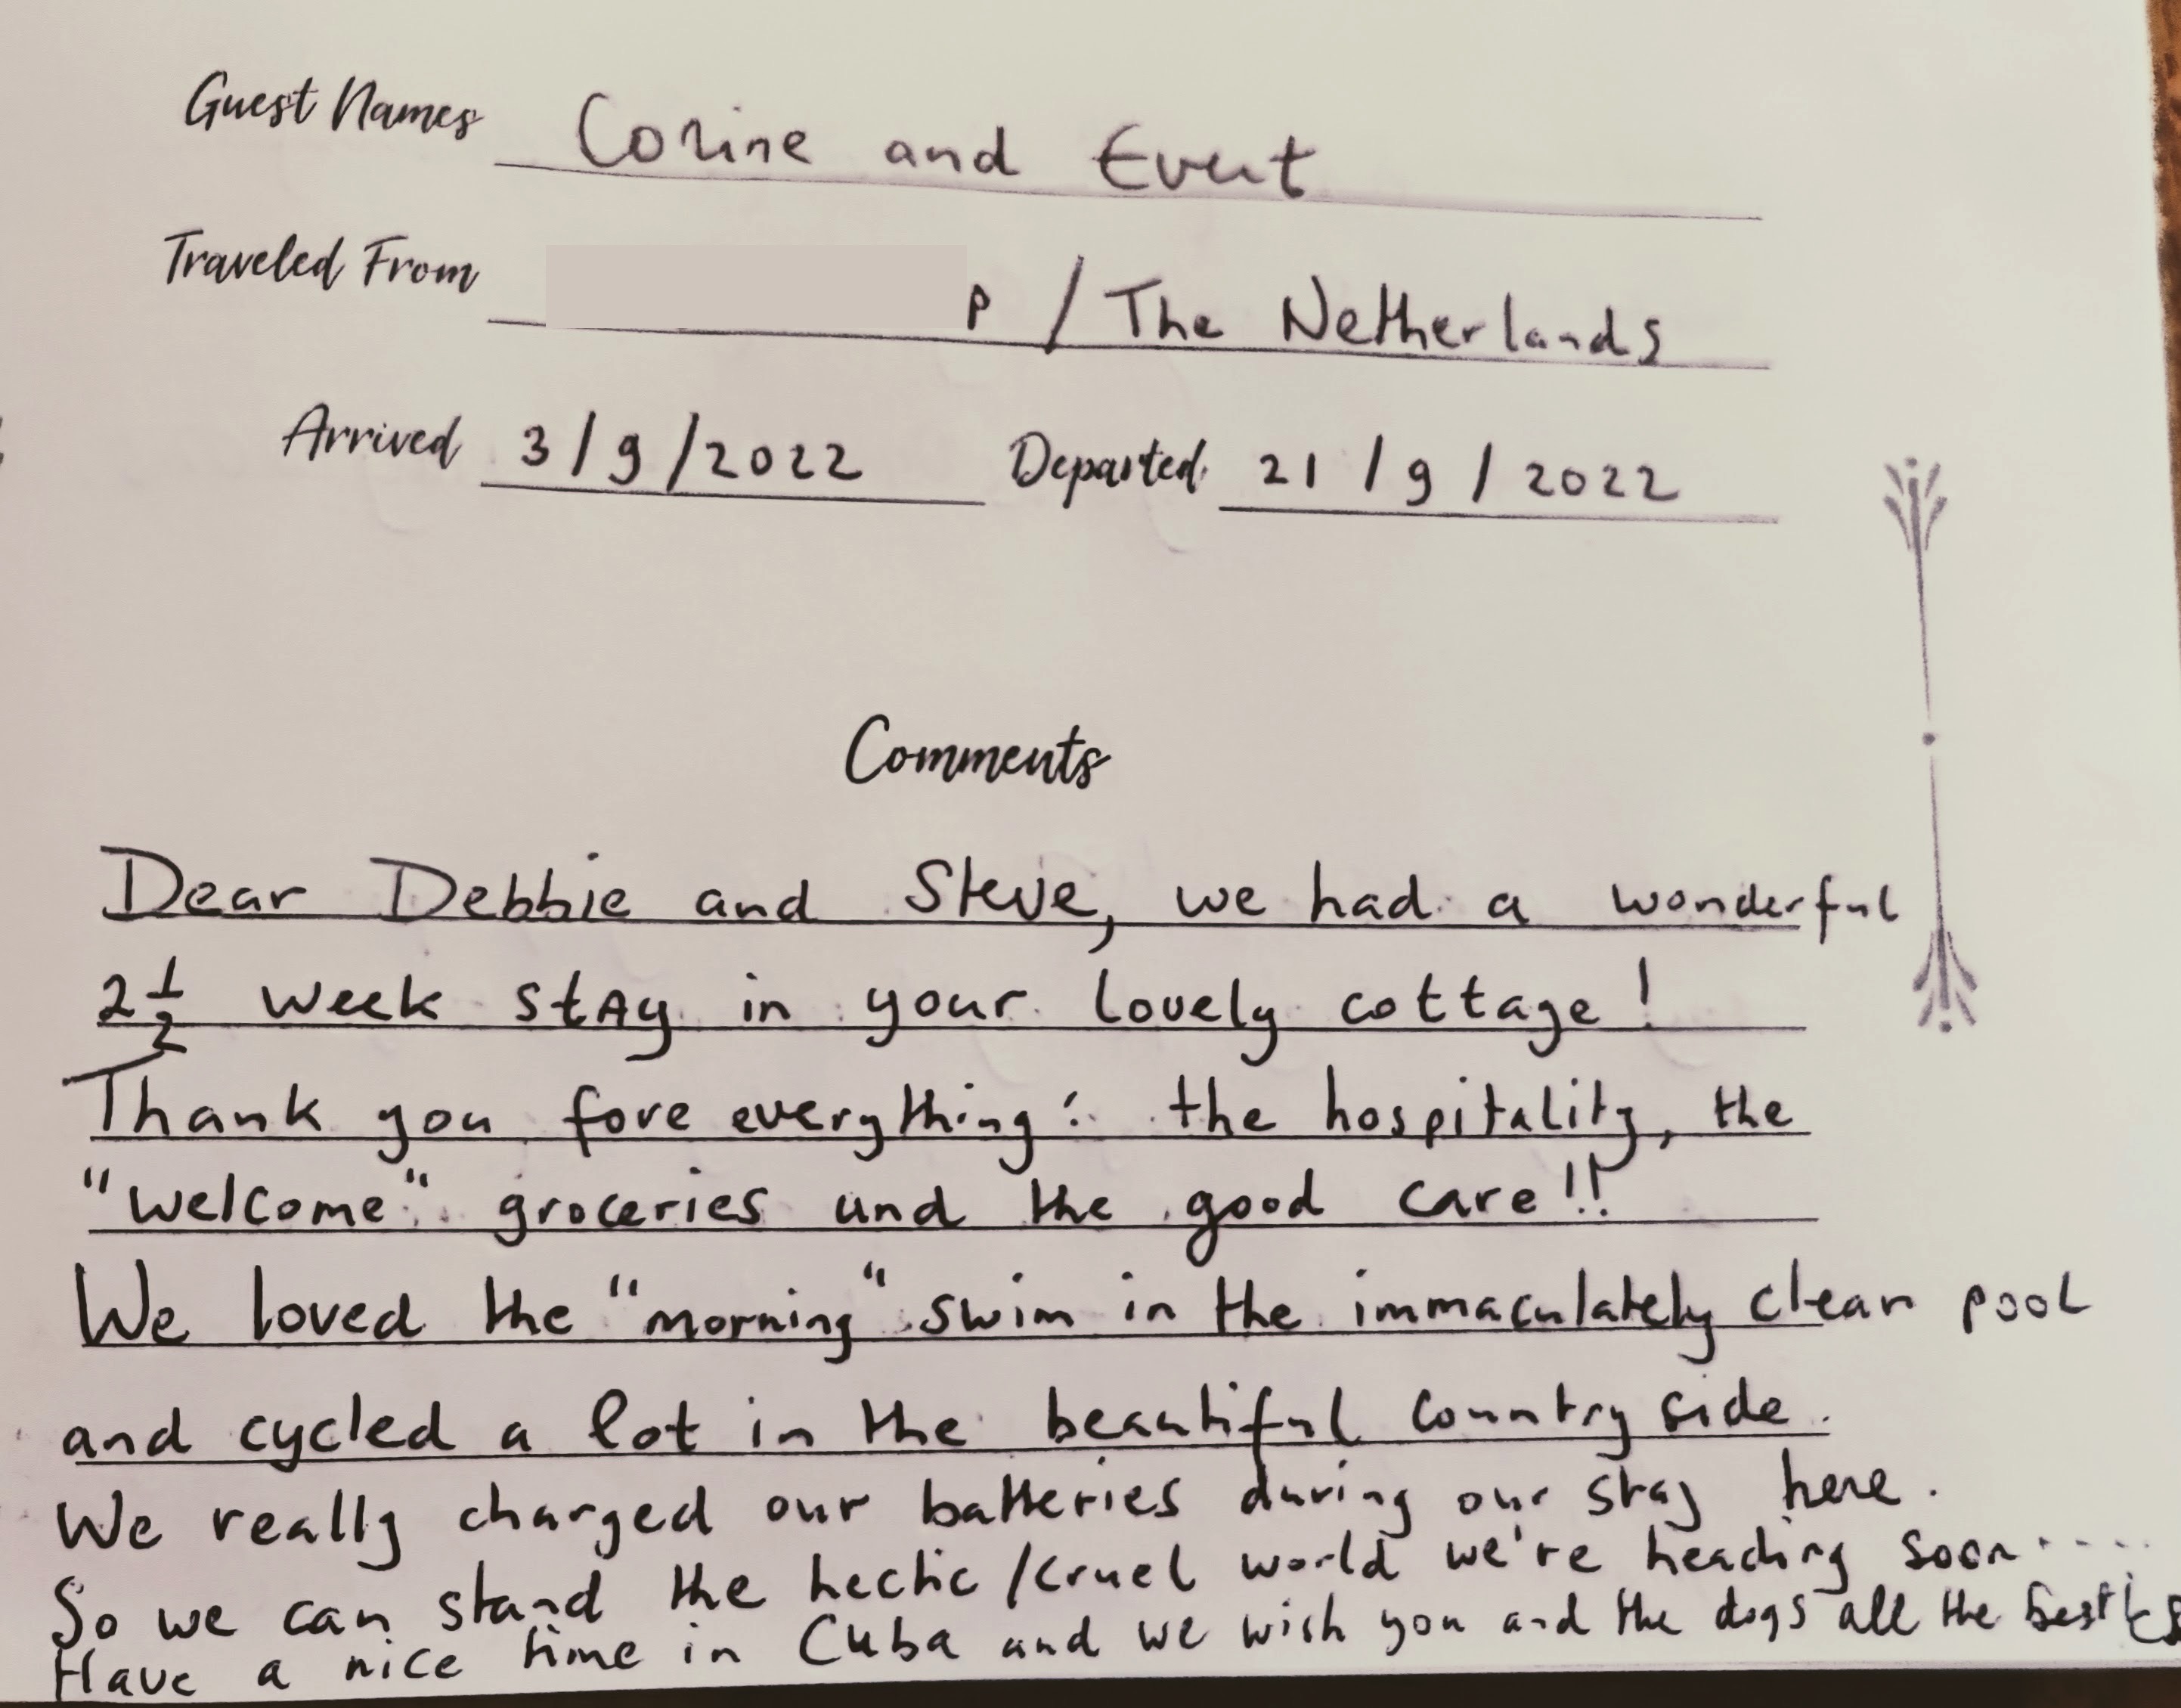 Guest Names Corine and Evert
Traveled From p / The Netherlands
Arrived 3/9/2022 Departed 21/9/2022
Comments
Dear Debbie and Steve, we had a wonderful
2 1/2 week stay in your lovely cottage!
Thank you fore everything: the hospitality, the
"welcome" groceries and the good care!!
We loved the "morning" swim in the immaculately clean pool
and cycled a lot in the beautiful country side.
We really charged our batteries during our stay here.
So we can stand the hectic/cruel world we're heading soon.....
Have a nice time in Cuba and we wish you and the dogs all the best